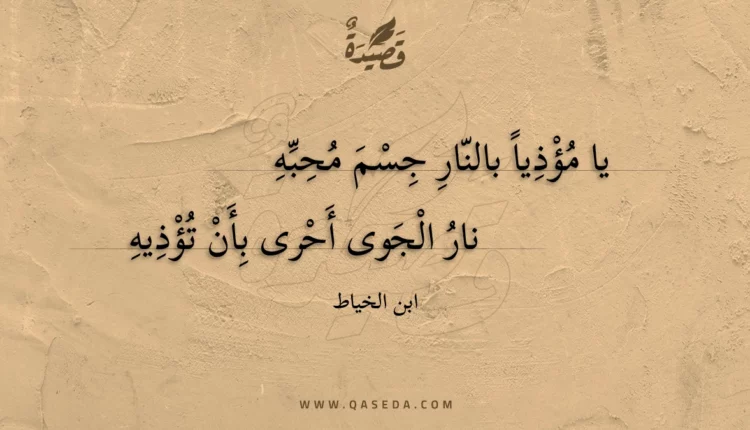 قَصِيدَةٌ
يا مُؤْذِياً بالنّارِ جِسْمَ مُحِبِّهِ
نارُ الْجَوى أَحْرى بِأَنْ تُؤْذِيهِ
ابن الخياط
WWW.QASEDA.COM